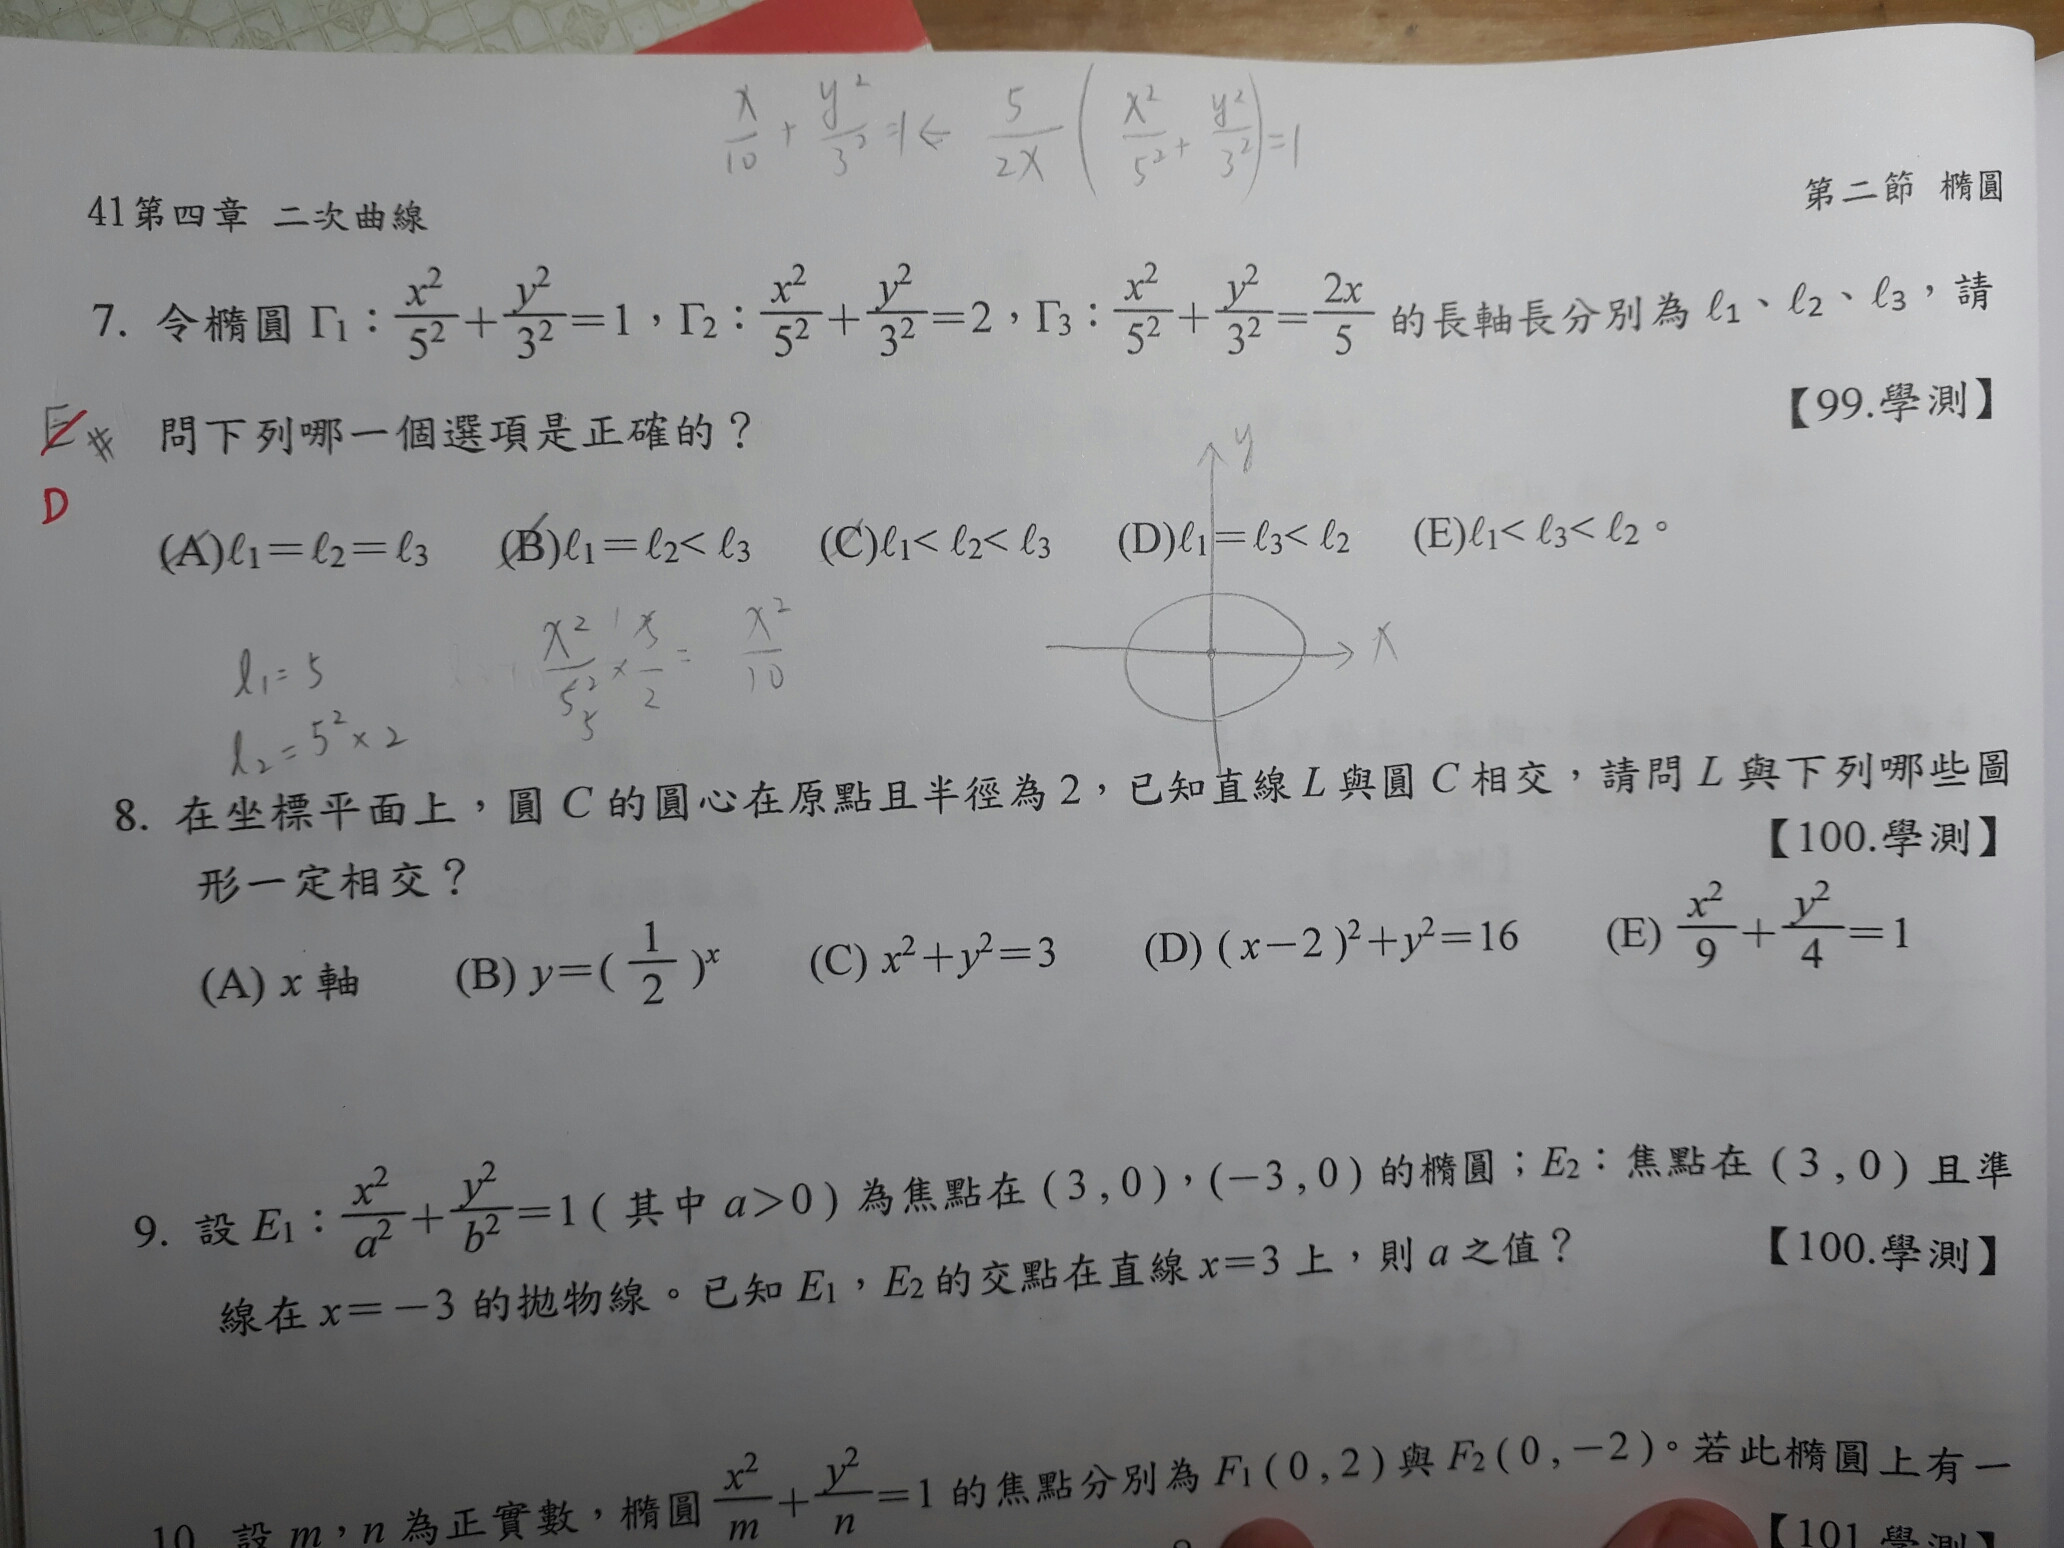 x/10 + y²/3² =1 ← 5/2x ( x²/5² + y²/3² ) =1
41第四章 二次曲線
第二節 橢圓
7. 令橢圓 Γ₁：x²/5²+y²/3²=1，Γ₂：x²/5²+y²/3²=2，Γ₃：x²/5²+y²/3²=2x/5 的長軸長分別為 ℓ₁、ℓ₂、ℓ₃，請
問下列哪一個選項是正確的？
【99.學測】
E #
D
(A)ℓ₁=ℓ₂=ℓ₃ (B)ℓ₁=ℓ₂<ℓ₃ (C)ℓ₁<ℓ₂<ℓ₃ (D)ℓ₁=ℓ₃<ℓ₂ (E)ℓ₁<ℓ₃<ℓ₂。
y
x
ℓ₁=5
ℓ₂=5²×2
= x²/10
8. 在坐標平面上，圓 C 的圓心在原點且半徑為 2，已知直線 L 與圓 C 相交，請問 L 與下列哪些圖
形一定相交？
【100.學測】
(A) x 軸 (B) y=(1/2)ˣ (C) x²+y²=3 (D) (x−2)²+y²=16 (E) x²/9+y²/4=1
9. 設 E₁：x²/a²+y²/b²=1(其中 a>0) 為焦點在 (3,0)，(−3,0) 的橢圓；E₂：焦點在 (3,0) 且準
線在 x=−3 的拋物線。已知 E₁，E₂ 的交點在直線 x=3 上，則 a 之值？
【100.學測】
10. 設 m，n 為正實數，橢圓 x²/m+y²/n=1 的焦點分別為 F₁(0,2) 與 F₂(0,−2)。若此橢圓上有一
【101.學測】